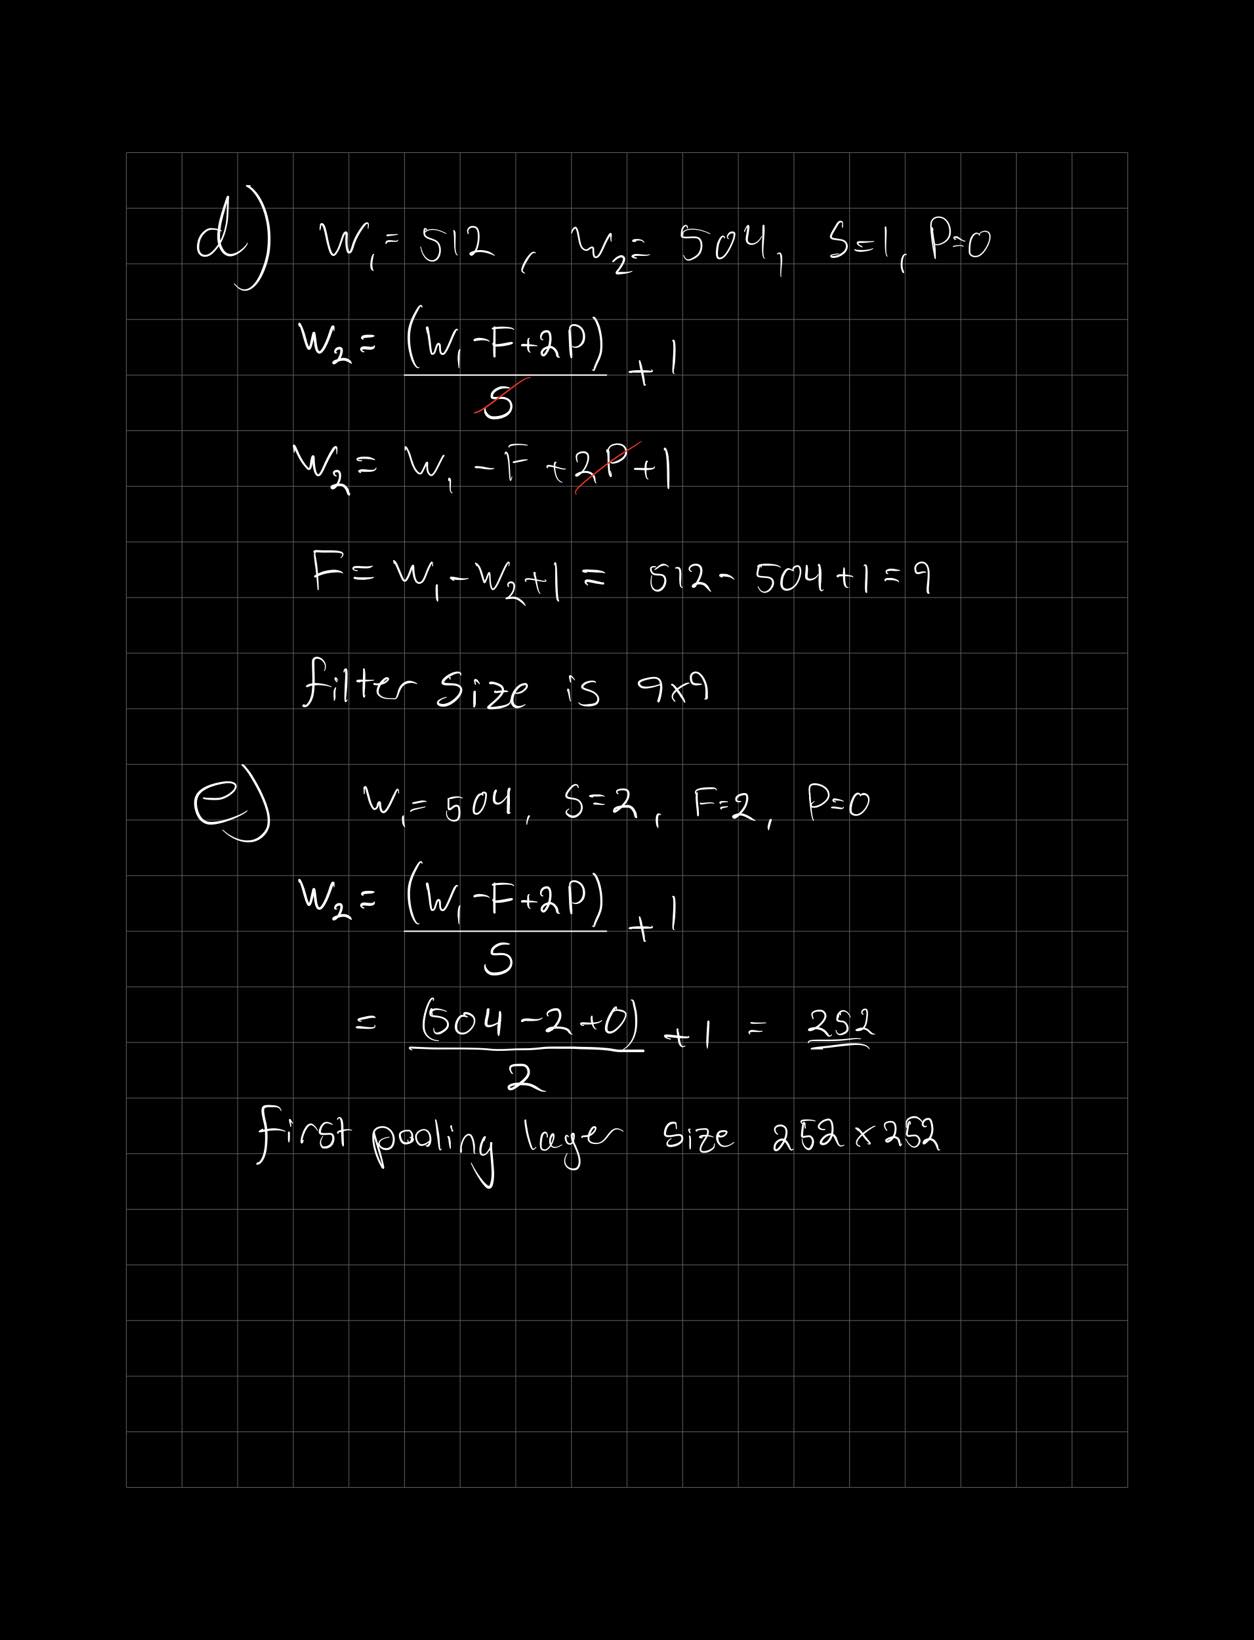 d) W₁ = 512, W₂ = 504, S=1, P=0
W₂ = (W₁ - F + 2P) / S + 1
W₂ = W₁ - F + 2P + 1
F = W₁ - W₂ + 1 = 512 - 504 + 1 = 9
filter size is 9x9
e) W₁ = 504, S=2, F=2, P=0
W₂ = (W₁ - F + 2P) / S + 1
= (504 - 2 + 0) / 2 + 1 = 252
first pooling layer size 252 x 252